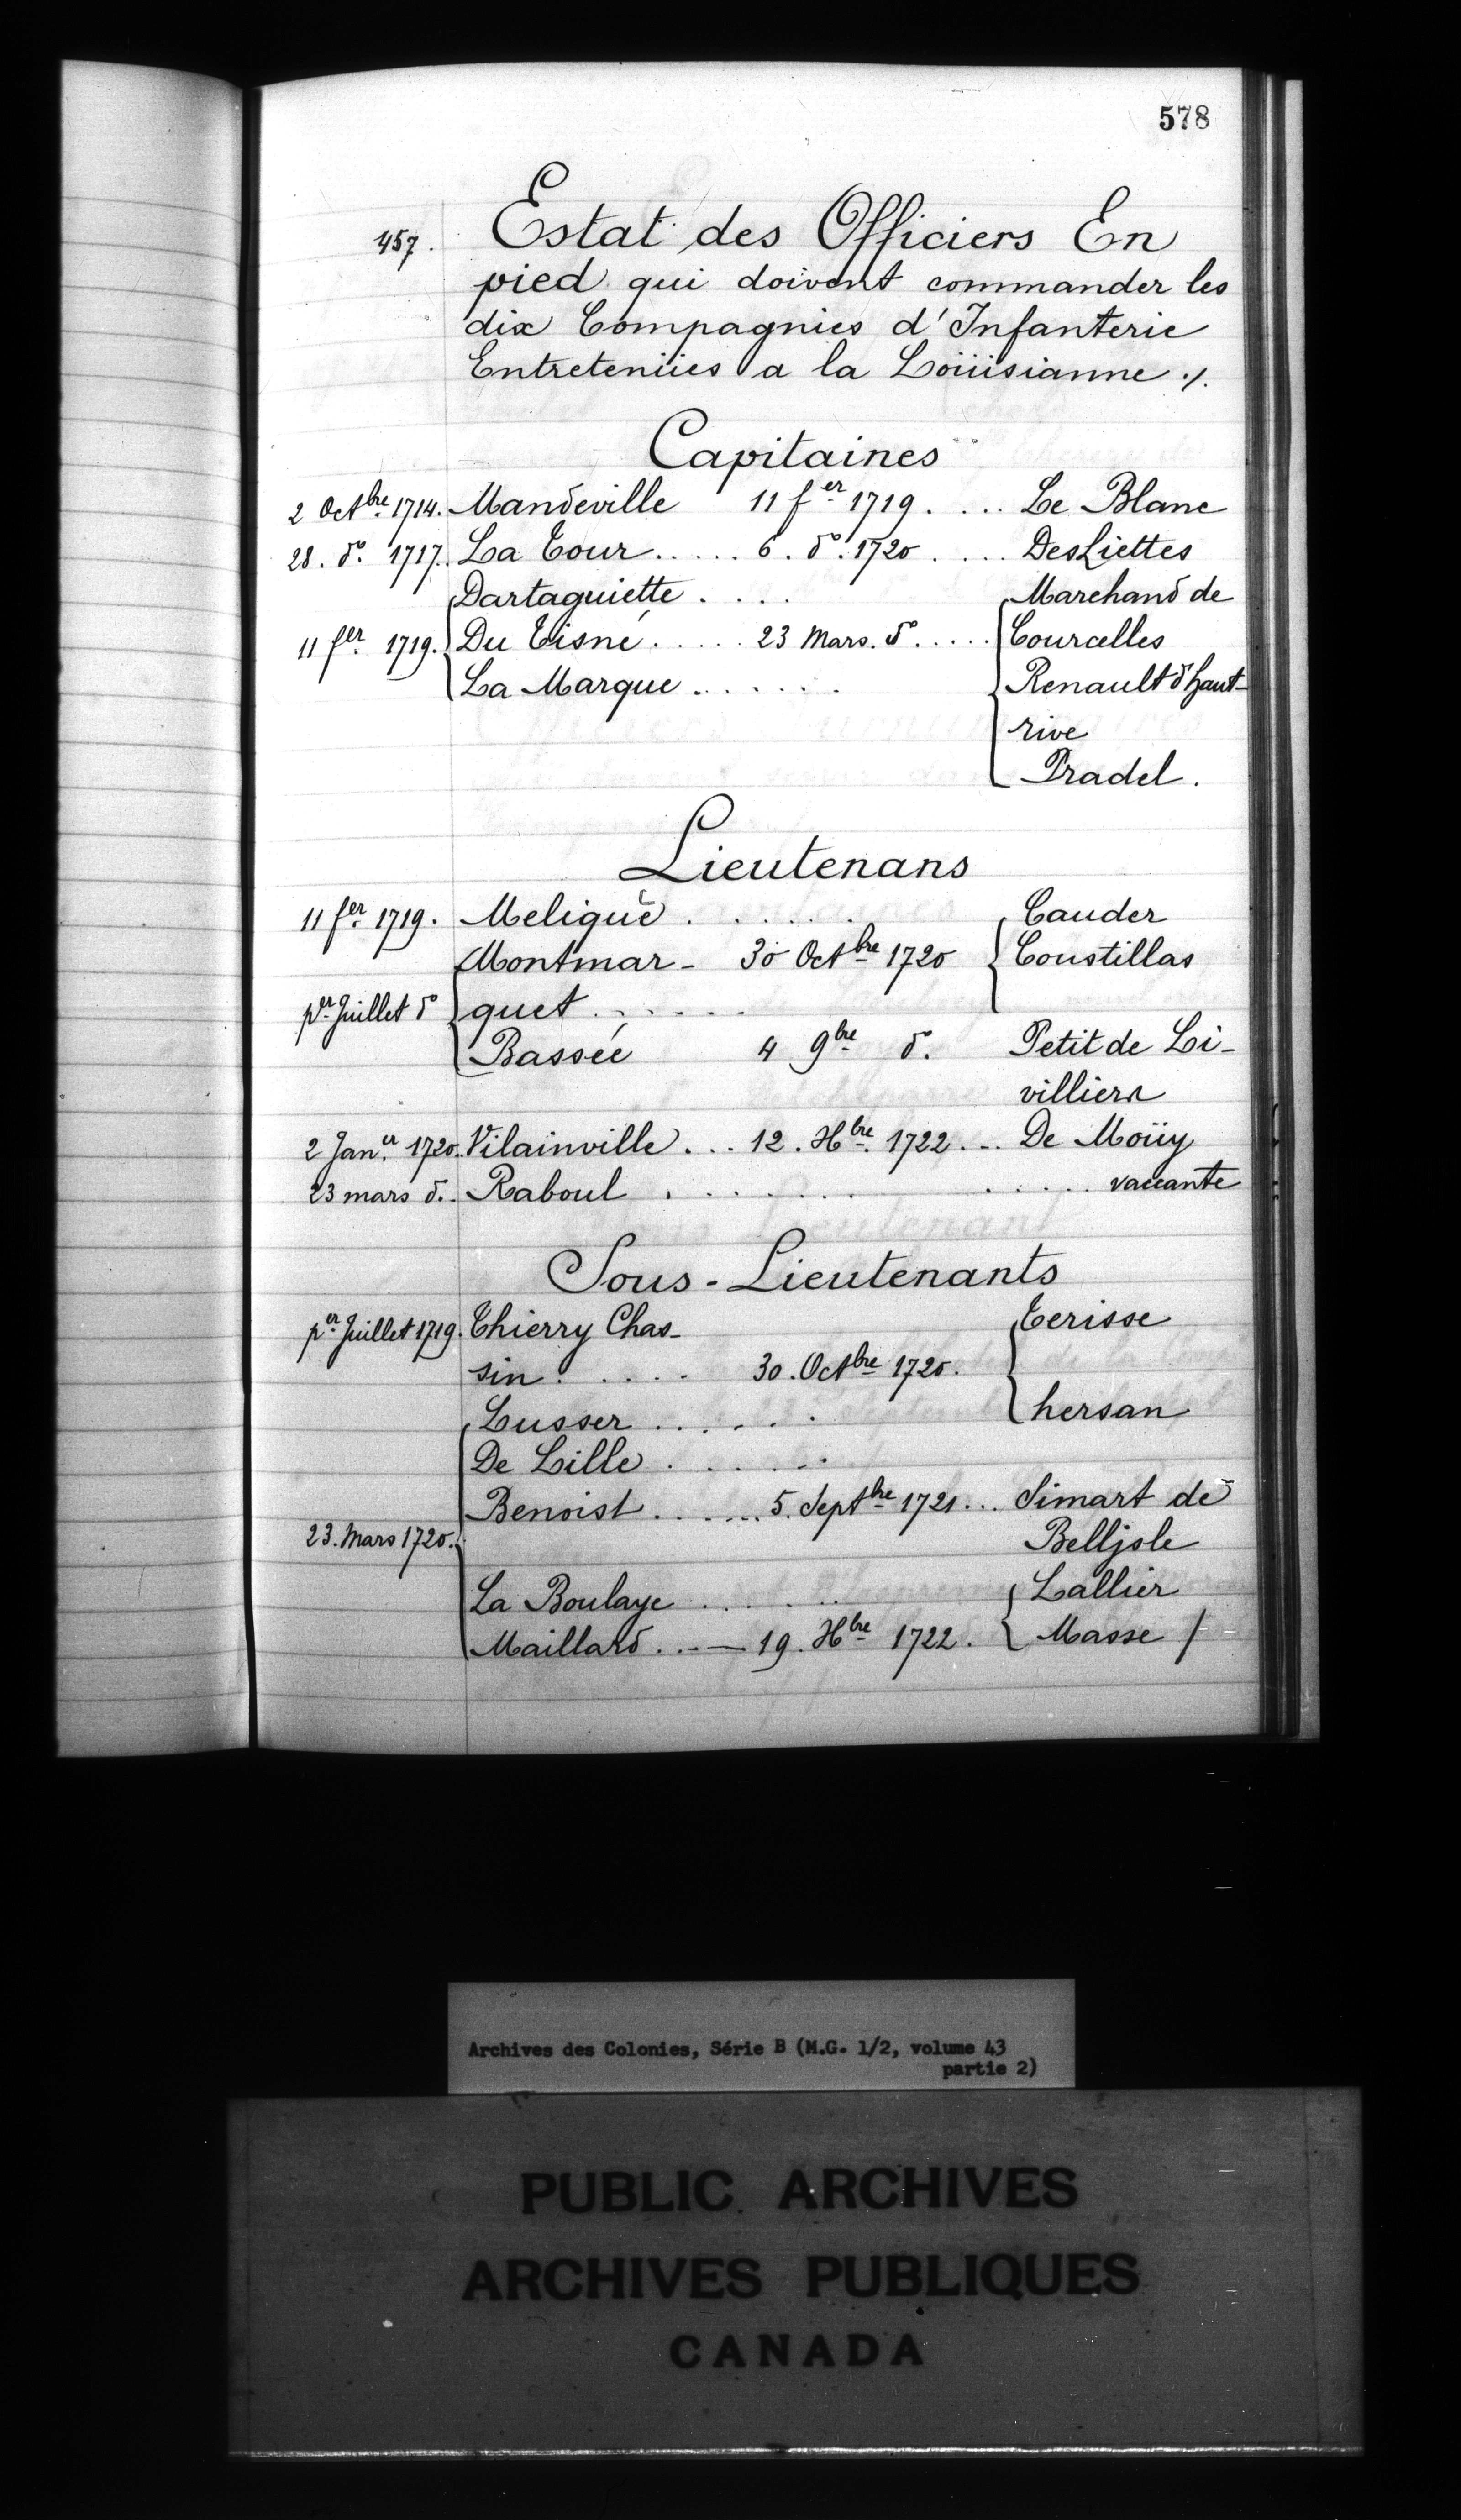 578
457. Estat des Officiers En
pied qui doivent commander les
dix Compagnies d'Infanterie
Entreteniies a la Loiiisianne ./.
Capitaines
2 Octbre 1714. Mandeville 11 fer 1719. ... Le Blanc
28. do. 1717. La Tour ..... 6. do. 1720 .... DesLiettes
Dartaguiette .... Marchand de
11 fer 1719. Du Tisné ..... 23 Mars. do ..... Courcelles
La Marque ...... Renault d'haut-
rive
Pradel.
Lieutenans
11 fer 1719. Meliquè ..... Cauder
Montmar- 30 Octbre 1720 Coustillas
per Juillet do quet ......
Bassée 4 9bre do. Petit de Li-
villiers
2 Janer 1720. Vilainville ... 12. Xbre 1722 ... De Moüy
23 mars d. Raboul ......... vaccante
Sous-Lieutenants
per Juillet 1719. Thierry Chas- Terisse
sin ..... 30. Octbre 1720.
Lusser ...... hersan
De Lille ......
Benoist ...... 5. Septbre 1721 ... Simart de
23. Mars 1720. Belljsle
La Boulaye ...... Lallier
Maillard ... — 19. Xbre 1722. Masse /
Archives des Colonies, Série B (M.G. 1/2, volume 43
partie 2)
PUBLIC ARCHIVES
ARCHIVES PUBLIQUES
CANADA